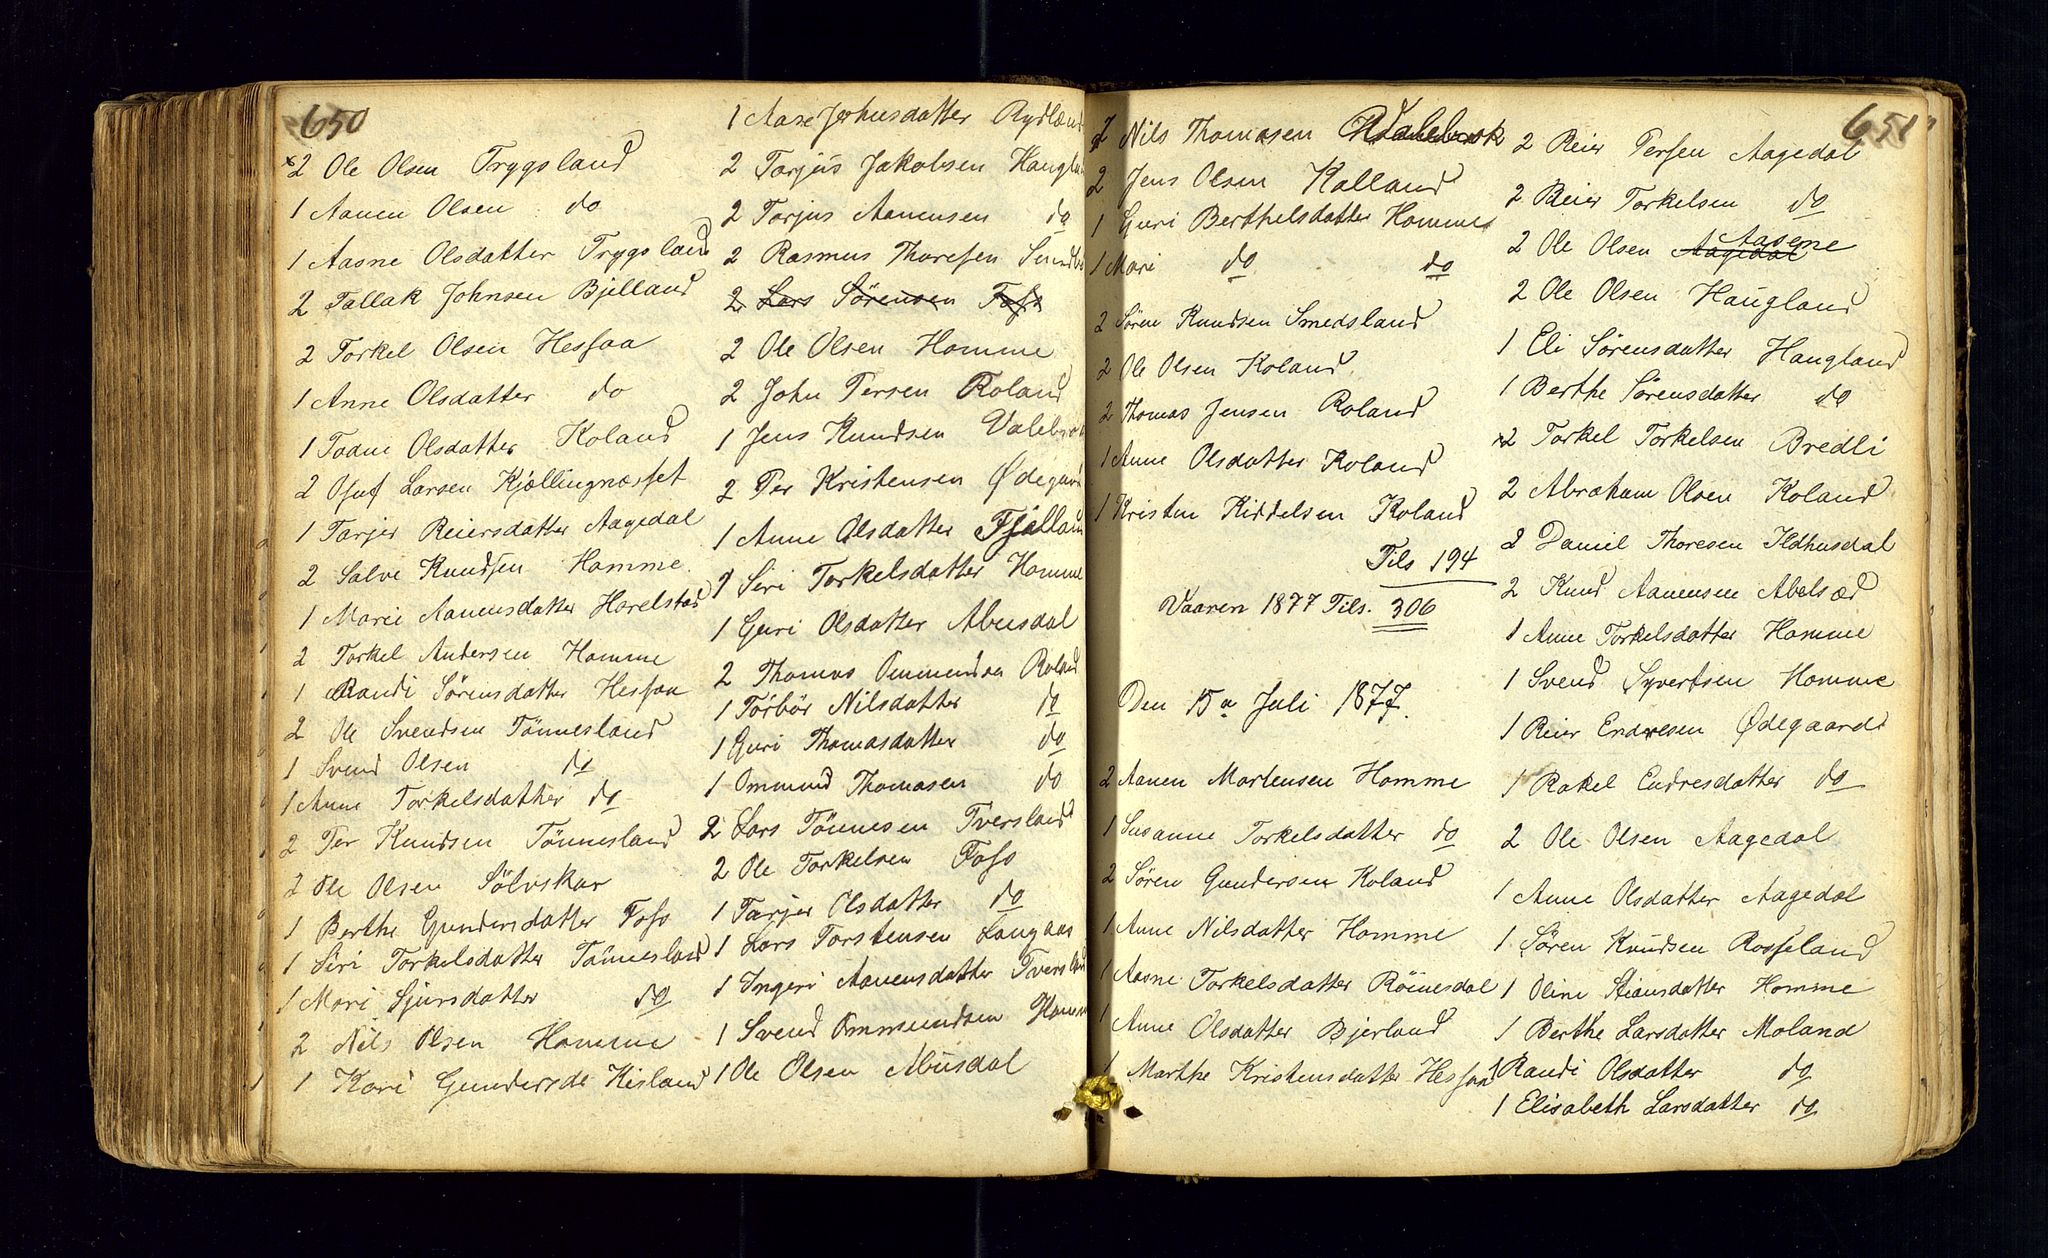 650
2 Ole Olsen Trygsland
1 Aanen Olsen do
1 Aasne Olsdatter Trygsland
2 Tallak Johnsen Bjelland
2 Torkel Olsen Hessaa
1 Anne Olsdatter do
1 Todne Olsdatter Koland
2 Osuf Larsen Kjællingnæsset
1 Tarjer Reiersdatter Aagedal
2 Salve Knudsen Homme
1 Mari Aanensdatter Harelstad
2 Torkel Andersen Homme
1 Randi Sørensdatter Hessaa
2 Ole Svendsen Tönnesland
1 Svend Olsen do
1 Anne Torkelsdatter do
2 Per Knudsen Tönnesland
2 Ole Olsen Sölvskar
1 Berthe Gundersdatter Foss
1 Siri Torkelsdatter Tönnesland
1 Mari Sjursdatter do
2 Nils Olsen Homme
1 Kari Gundersd Kisland
1 Aase Johnsdatter Rydland
2 Tarjus Jakobsen Haugland
2 Tarjus Aanensen do
2 Rasmus Thoresen
2 Lars Sörensen Foss
2 Ole Olsen Homme
2 John Persen Roland
1 Jens Knudsen
2 Per Kristensen Ødegaard
1 Anne Olsdatter Fjælland
1 Siri Torkelsdatter Homme
1 Guri Olsdatter Abusdal
2 Thomas Ommundsen Roland
1 Törbör Nilsdatter do
1 Guri Thomasdatter do
1 Ommund Thomasen do
2 Lars Tönnesen Tversland
2 Ole Torkelsen Foss
1 Tarjer Olsdatter do
1 Lars Torstensen Langaas
1 Ingeri Aanensdatter Tversland
1 Svend Ommundsen Homme
1 Ole Olsen Abusdal
651
2 Nils Thomasen
2 Jens Olsen Kalland
1 Guri Berthelsdatter Homme
1 Mari do do
2 Sören Knudsen Smedsland
2 Ole Olsen Koland
2 Thomas Jensen Roland
1 Anne Olsdatter Koland
1 Kristen Kiddelsen Koland
Tils 194
Vaaren 1877 Tils. 306
Den 15de Juli 1877.
2 Aanen Mortensen Homme
1 Susanne Torkelsdatter do
2 Sören Gundersen Koland
1 Anne Nilsdatter Homme
1 Aasne Torkelsdatter Röinesdal
1 Anne Olsdatter Bjerland
1 Marthe Kristensdatter Hessaa
2 Reier Persen Aagedal
2 Reier Torkelsen do
2 Ole Olsen Aagedal Aasene
2 Ole Olsen Haugland
1 Eli Sørensdatter Haugland
1 Berthe Sørensdatter do
2 Torkel Torkelsen Bredli
2 Abraham Olsen Koland
2 Daniel Thoresen Ildhusdal
2 Knud Aanensen Abelsæd
1 Anne Torkelsdatter Homme
1 Svend Syvertsen Homme
1 Reier Endresen Ødegaard
1 Rakel Endresdatter do
2 Ole Olsen Aagedal
1 Anne Olsdatter Aagedal
1 Søren Knudsen Rosseland
1 Oline Stiansdatter Homme
1 Berthe Larsdatter Moland
1 Randi Olsdatter do
1 Elisabeth Larsdatter do